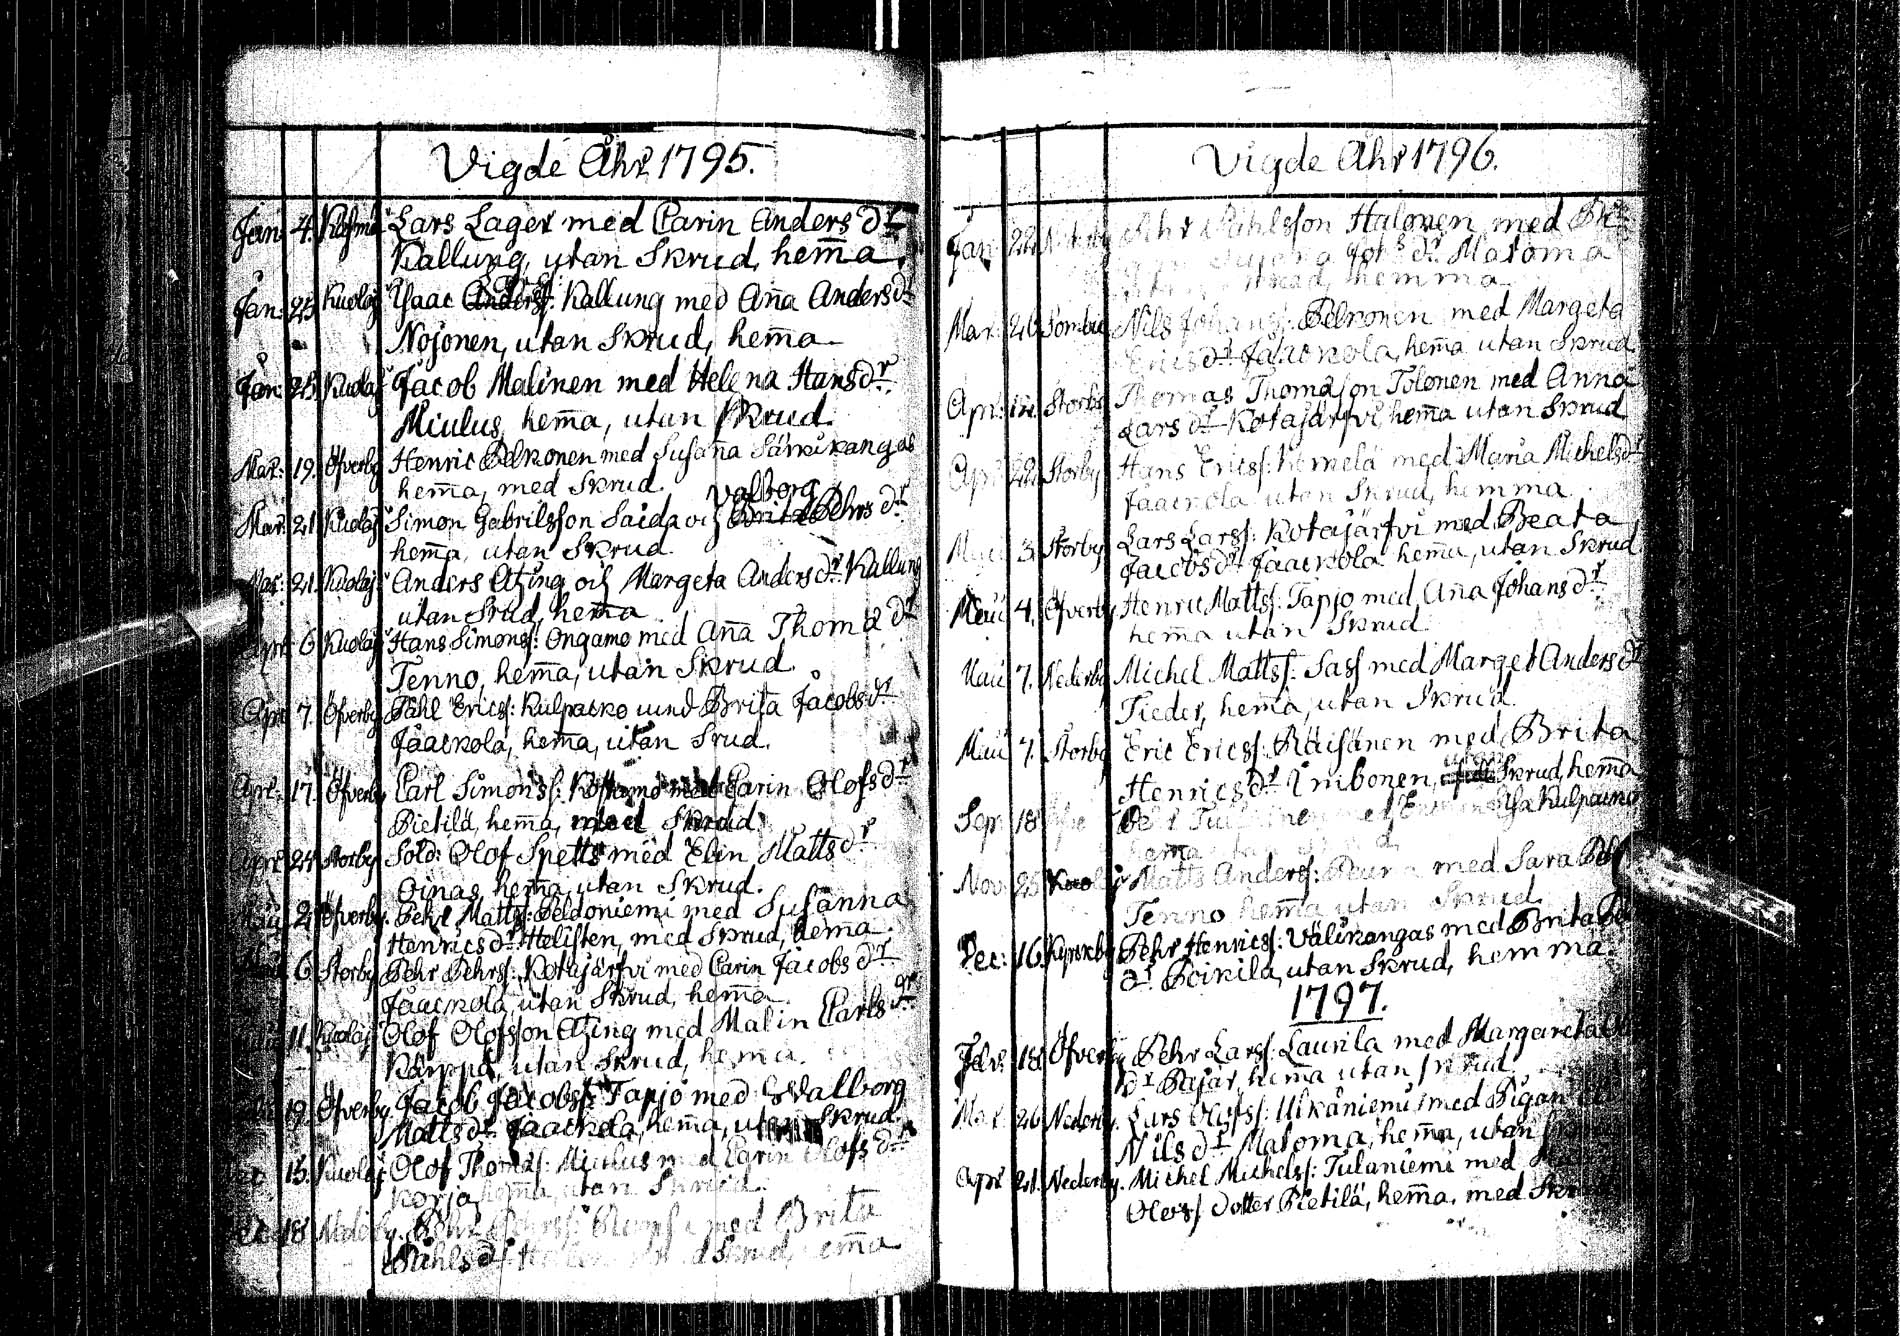 Vigde Åhr 1795.
Jan: 4. Lars Lager med Carin Anders dr
Kallung, utan Skrud, hem̅a.
Jan: 25. Kuolaj: Isaac Kallung med An̅a Anders dr
Nojonen, utan Skrud, hem̅a
Jan: 25. Kuolaj: Jacob Malinen med Helena Hans dr
Miulus, hem̅a, utan Skrud.
Mar: 19. Öfverby Henric Pelkonen med Susan̅a Särkikangas
hem̅a, med Skrud. Valborg
Mar: 21. Kuolaj: Simon Gabrilsson Saida och Brita Pehrs dr
hem̅a, utan Skrud.
Mar: 21. Kuolaj: Anders Atzing och Margeta Anders dr Kallung
utan Srud, hem̅a
Apr: 6 Kuolaj: Hans Simonss: Ongamo med An̅a Thoma dr
Tenno, hem̅a, utan Skrud.
Apr: 7. Öfverby Påhl Ericss: Kulpacko Brita Jacobs dr
Jaackola, hem̅a, utan Srud.
Apr: 17. Öfverby Carl Simonss: med Carin Olofs dr
Pietilä, hem̅a, med Skrud.
Apr: 24. Storby Sold: Olof Spetts med Elin Matts dr
Oinas, hem̅a, utan Skrud.
2. Öfverby. Pehr Mattss: Peldoniemi med Susanna
Henrics dr Helisten, med Skrud, hem̅a.
6. Storby Pehr Pehrss: Kotajärfvi med Carin Jacobs dr
Jaackola, utan Skrud, hem̅a.
11. Kuolaj: Olof Olofsson Atzing med Malin Carls dr
Kärppä, utan Skrud, hem̅a.
19. Öfverby. Jacob Jacobss: Tapjo med Walborg
Matts dr Jaackola, hem̅a, utan Skrud.
15. Kuolaj: Olof Thomass: Miulus med Carin Olofs dr
Korja, hem̅a, utan Skrud.
18 med Brita
Påhls dr Skrud, hem̅a
Vigde Åhr 1796.
Jan: 22. Påhlsson Halonen med
Matoma
hemma
Mar: 26. Sombio Nils Johanss: Pelkonen med Margeta
Erics dr Jaackola, hem̅a utan Skrud
Apr: 12. Storby Thomas Thomasson Tolonen med Anna
Lars dr Kotajärfvi, hem̅a utan Skrud
Apr: 22. Storby Hans Ericss: Kemelä med Maria Michels dr
Jaackola utan Skrud, hemma.
3. Storby Lars Larss: Kotajärfvi med Beata
Jacobs dr Jaackola hem̅a, utan Skrud
4. Öfverby Henric Mattss: Tapjo med An̅a Johans dr
hem̅a utan Skrud
7. Nederby Michel Mattss: Sass med Marget Anders dr
Tieder, hem̅a, utan Skrud.
7. Storby Eric Ericss: Räisänen med Brita
Henrics dr utan Skrud, hem̅a
Sep: 18 Kulpacko
hem̅a
Nov: 25 Kuolaj: Matts Anderss: Peura med Sara
Tenno hem̅a utan Skrud.
Dec: 16. Kyrckby Pehr Henricss: Välikangas med Brita
dr Poikila, utan Skrud, hemma.
1797.
Febr: 18. Öfverby Pehr Larss: Laurila med Margareta
dr Pajar, hem̅a utan Skrud.
Mar: 26 Nederby. Lars Olofss: Ulkuniemi med Pigan
Nils dr Matoma, hem̅a, utan
Apr: 21. Nederby. Michel Michelss: Tulaniemi med
Olofs dotter Pietilä, hem̅a, med